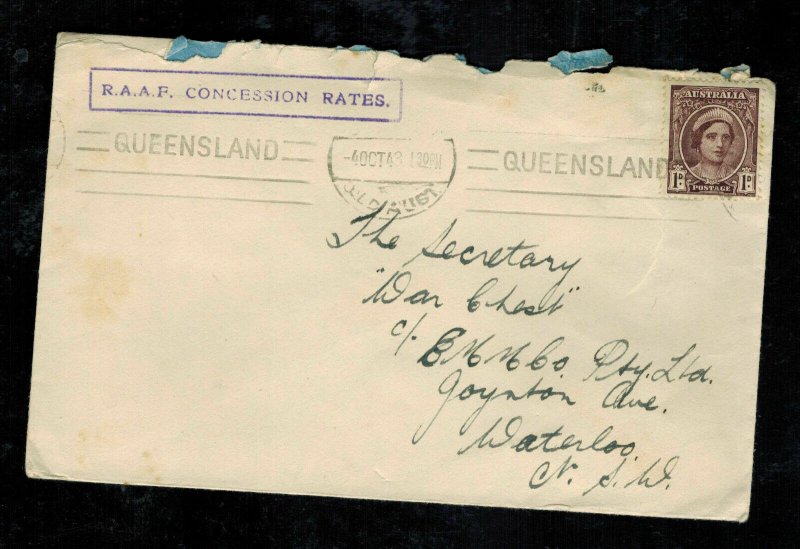 R.A.A.F. CONCESSION RATES.
QUEENSLAND
-4OCT43 130PM
QUEENSLAND
AUSTRALIA
1D 1D
POSTAGE
The Secretary
"War Chest"
c/. E M M Co. Pty. Ltd.
Joynton Ave.
Waterloo
N. S. W.